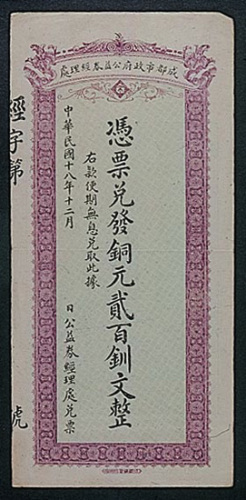 成都市政府公益券經理處
憑票兑發銅元貳百釧文整
右款便期無息兑取此據
中華民國十八年十二月
日公益券經理處兑票
經字第
號